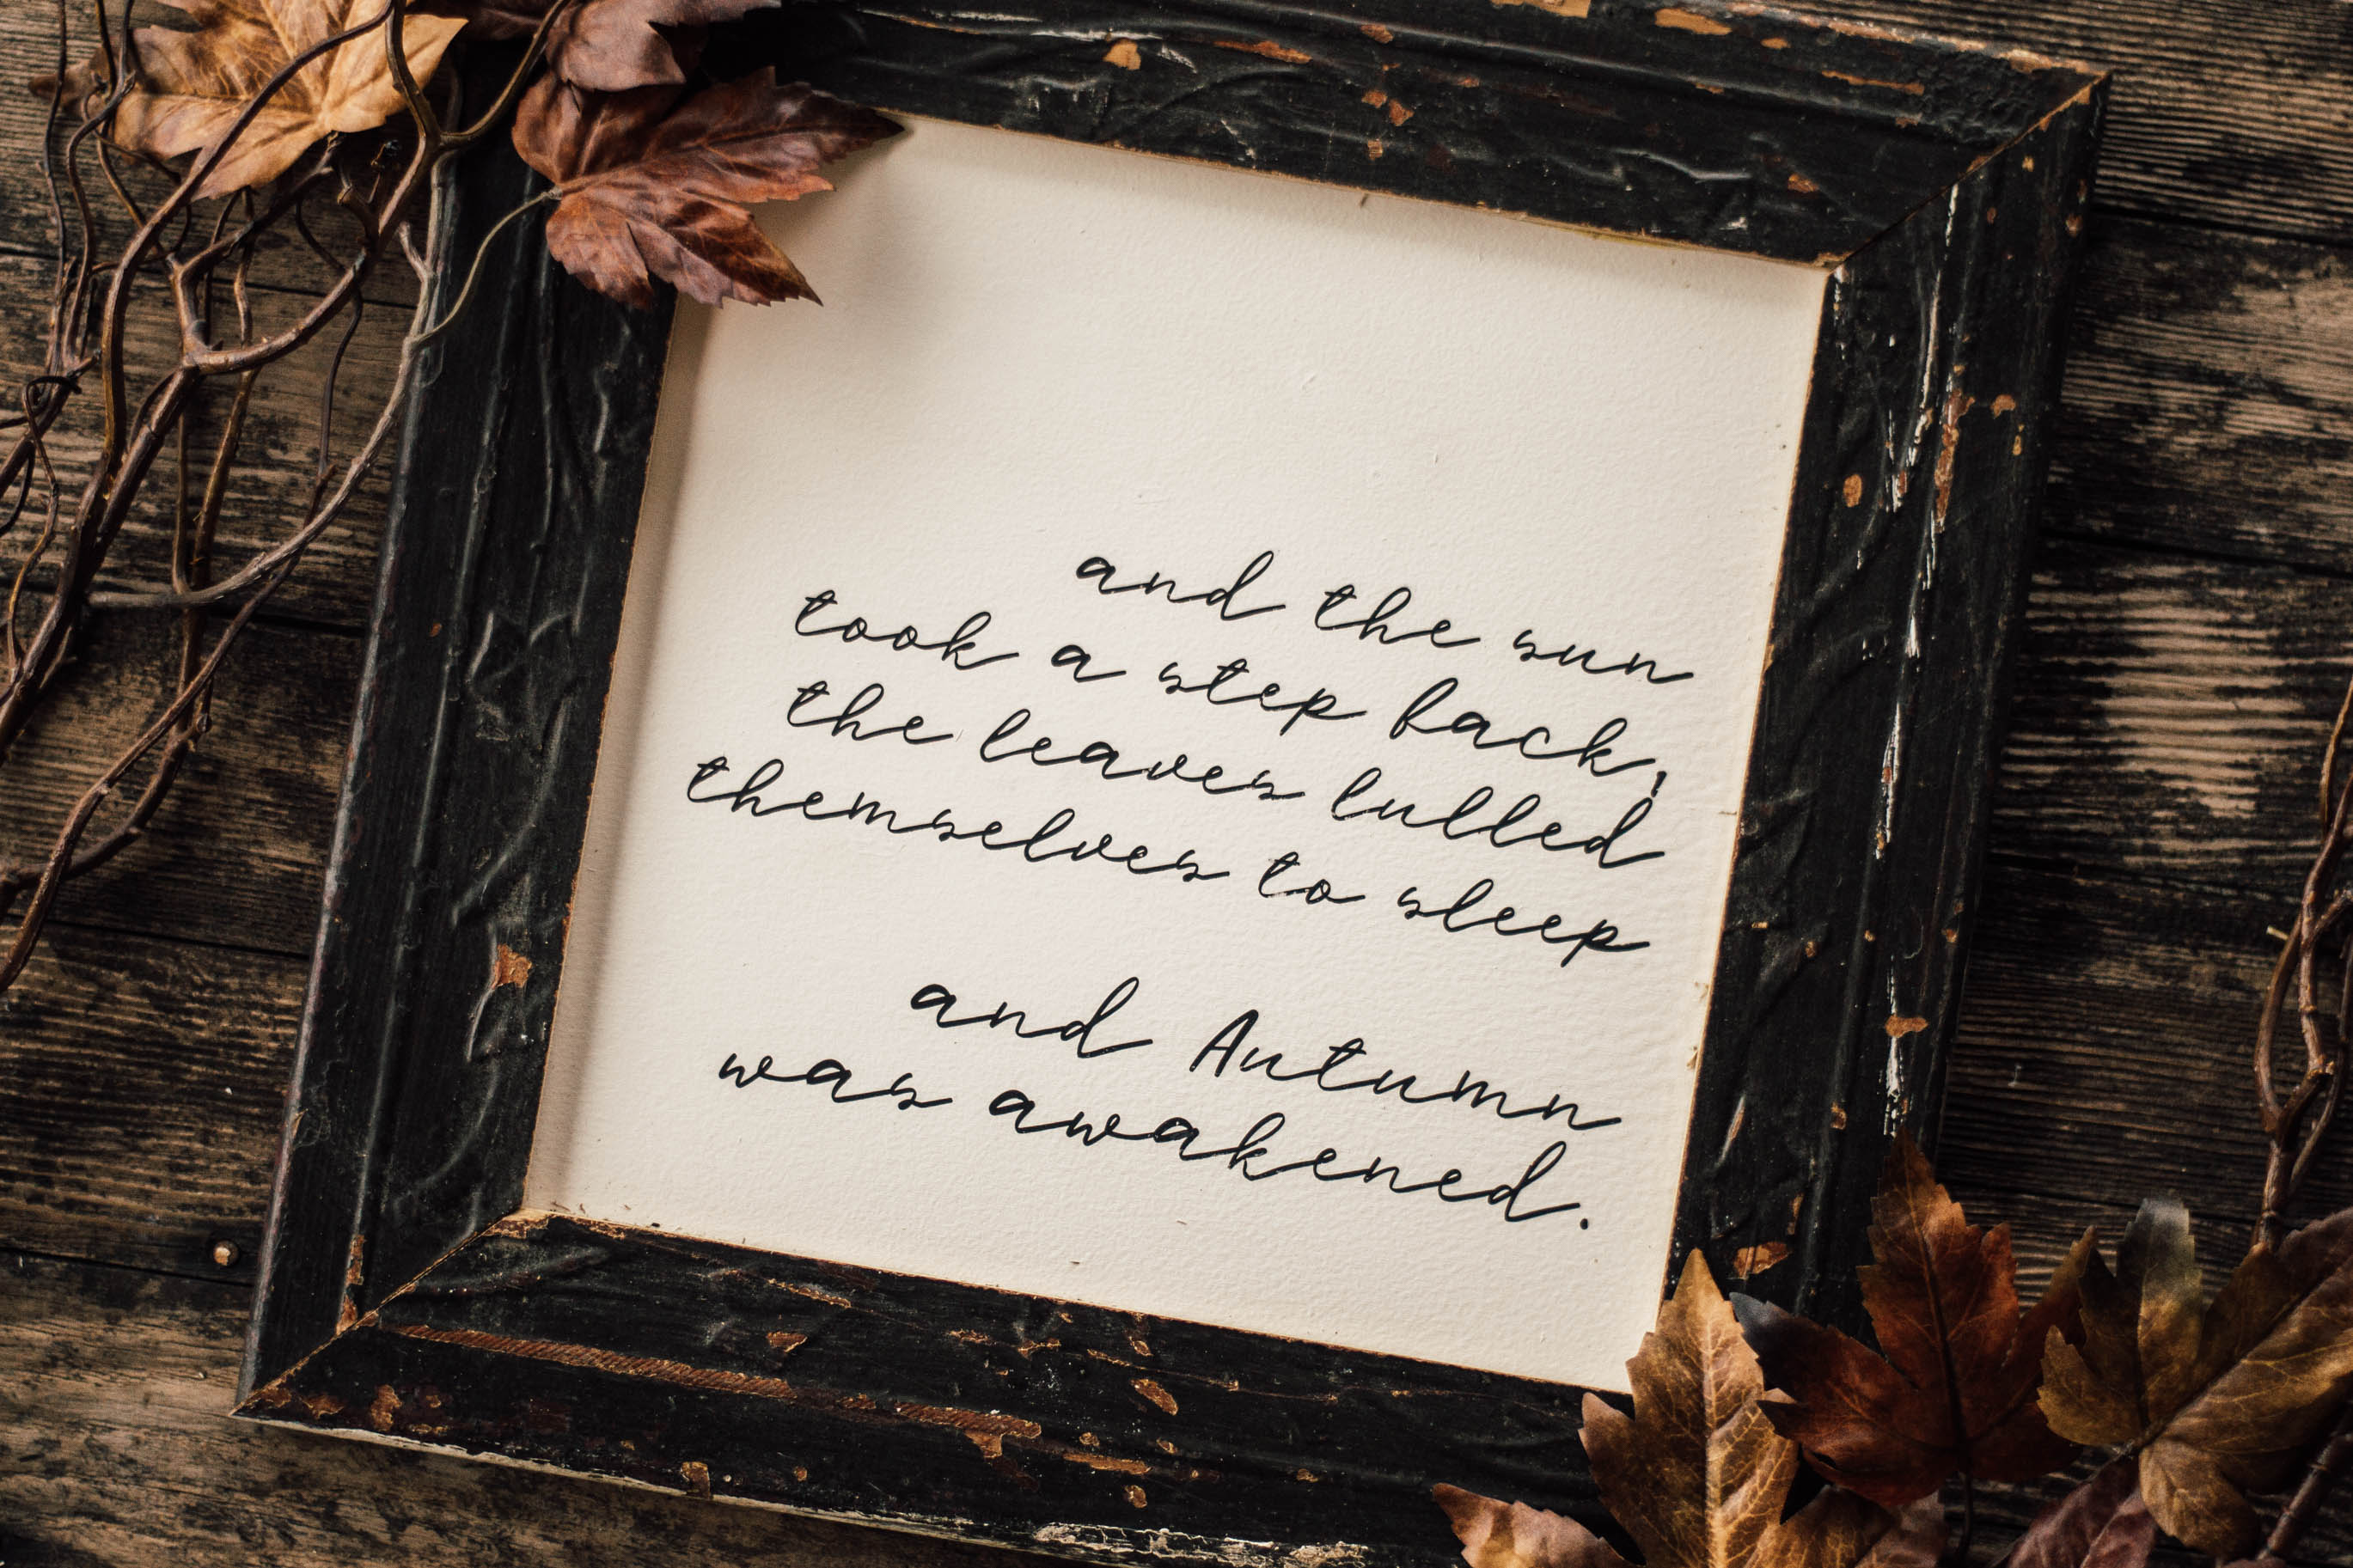 and the sun
took a step back,
the leaves lulled
themselves to sleep
and Autumn
was awakened.